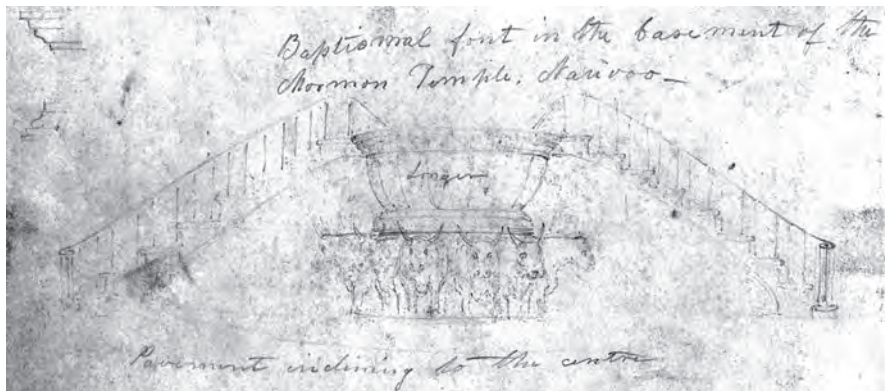 Baptismal font in the basement of the
Mormon Temple. Nauvoo—
longer
Pavement inclining to the centre